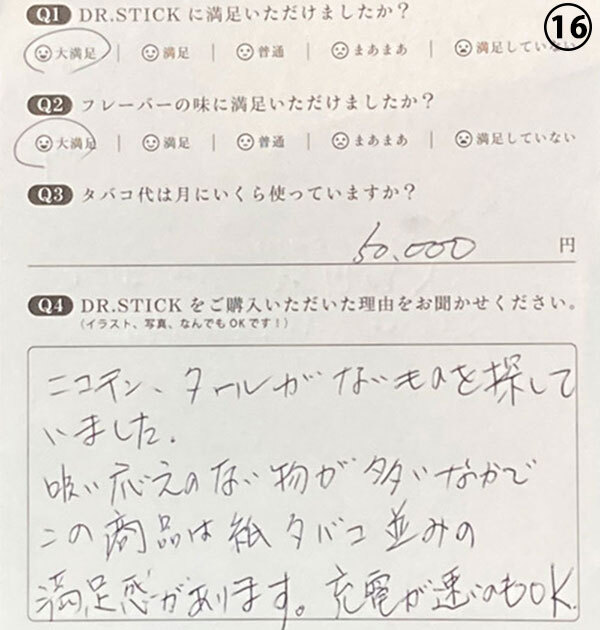 ⑯
Q1 DR.STICK に満足いただけましたか？
大満足 | 満足 | 普通 | まあまあ | 満足していない
Q2 フレーバーの味に満足いただけましたか？
大満足 | 満足 | 普通 | まあまあ | 満足していない
Q3 タバコ代は月にいくら使っていますか？
50.000 円
Q4 DR.STICK をご購入いただいた理由をお聞かせください。
（イラスト、写真、なんでもOKです！）
ニコチン、タールがないものを探して
いました.
吸い応えのない物が多いなかで
この商品は紙タバコ並みの
満足感があります。充電が速いのもOK.